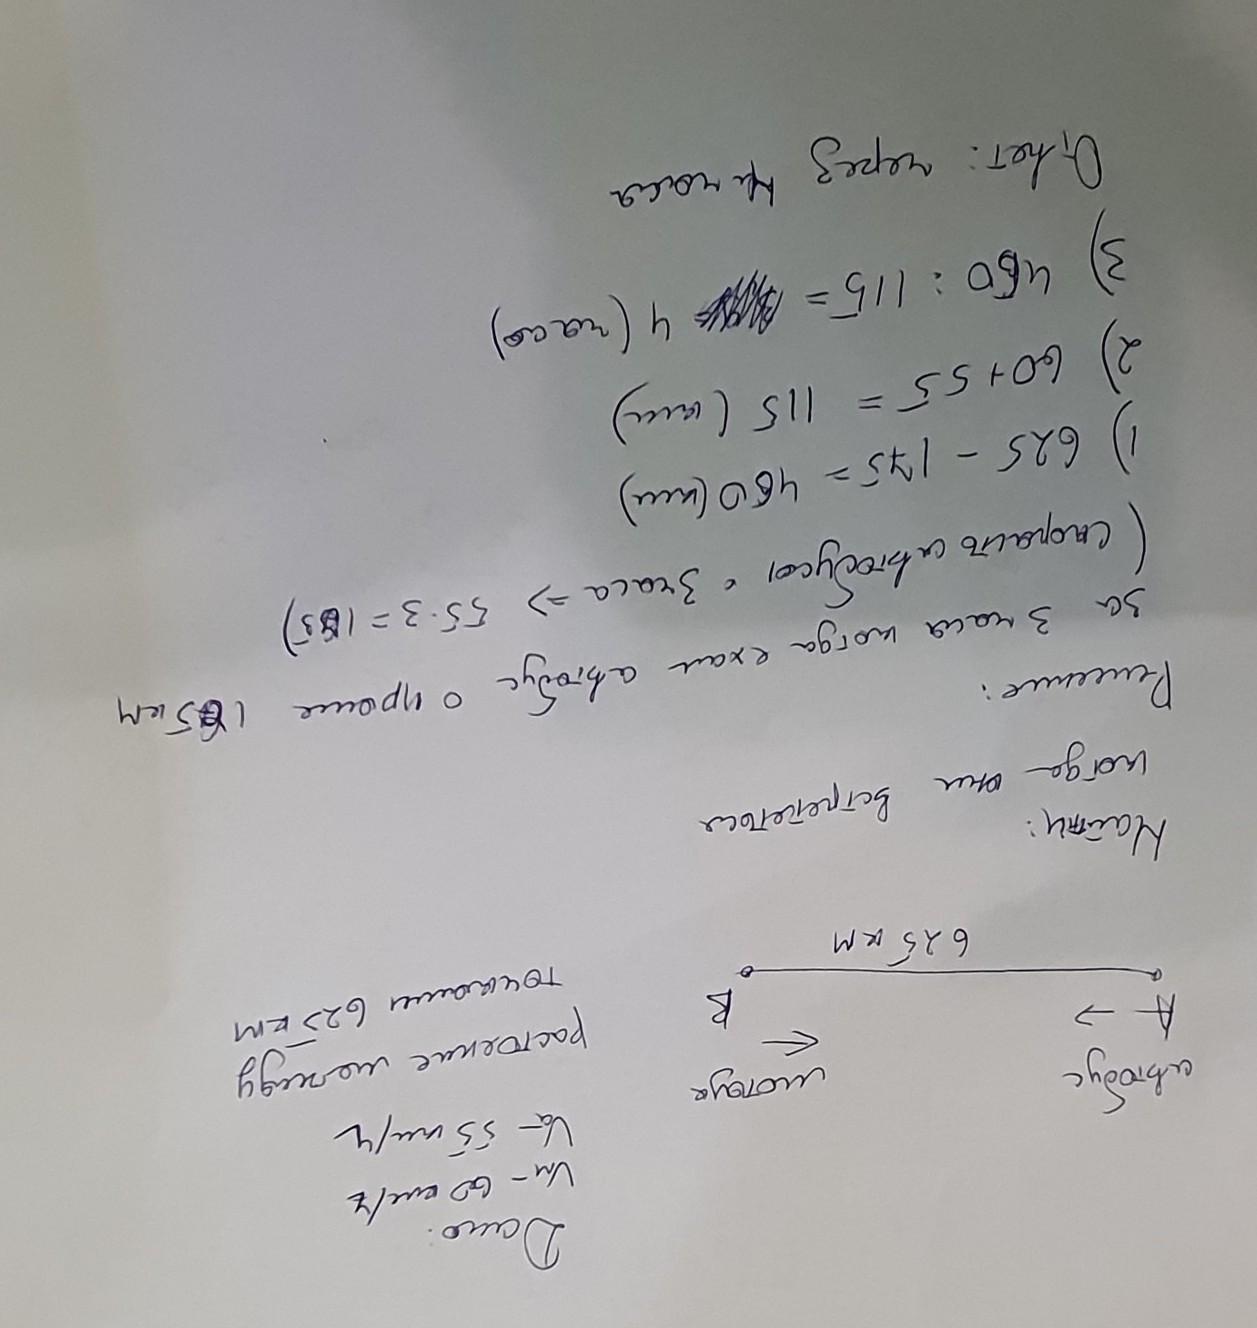 Дано:
Vм - 60 км/ч
Va - 55 км/ч
растоение между
точками 625 км
автобус
мотоцк
A → B
←
625 км
Найти:
когда они встретятся
Решение:
за 3 часа когда ехал автобус о проше 165 км
(скорость автобуса • 3 часа => 55·3 = 165)
1) 625 - 175 = 460 (км)
2) 60+55 = 115 (км)
3) 460 : 115 = 4 (часа)
Ответ: через 4 часа